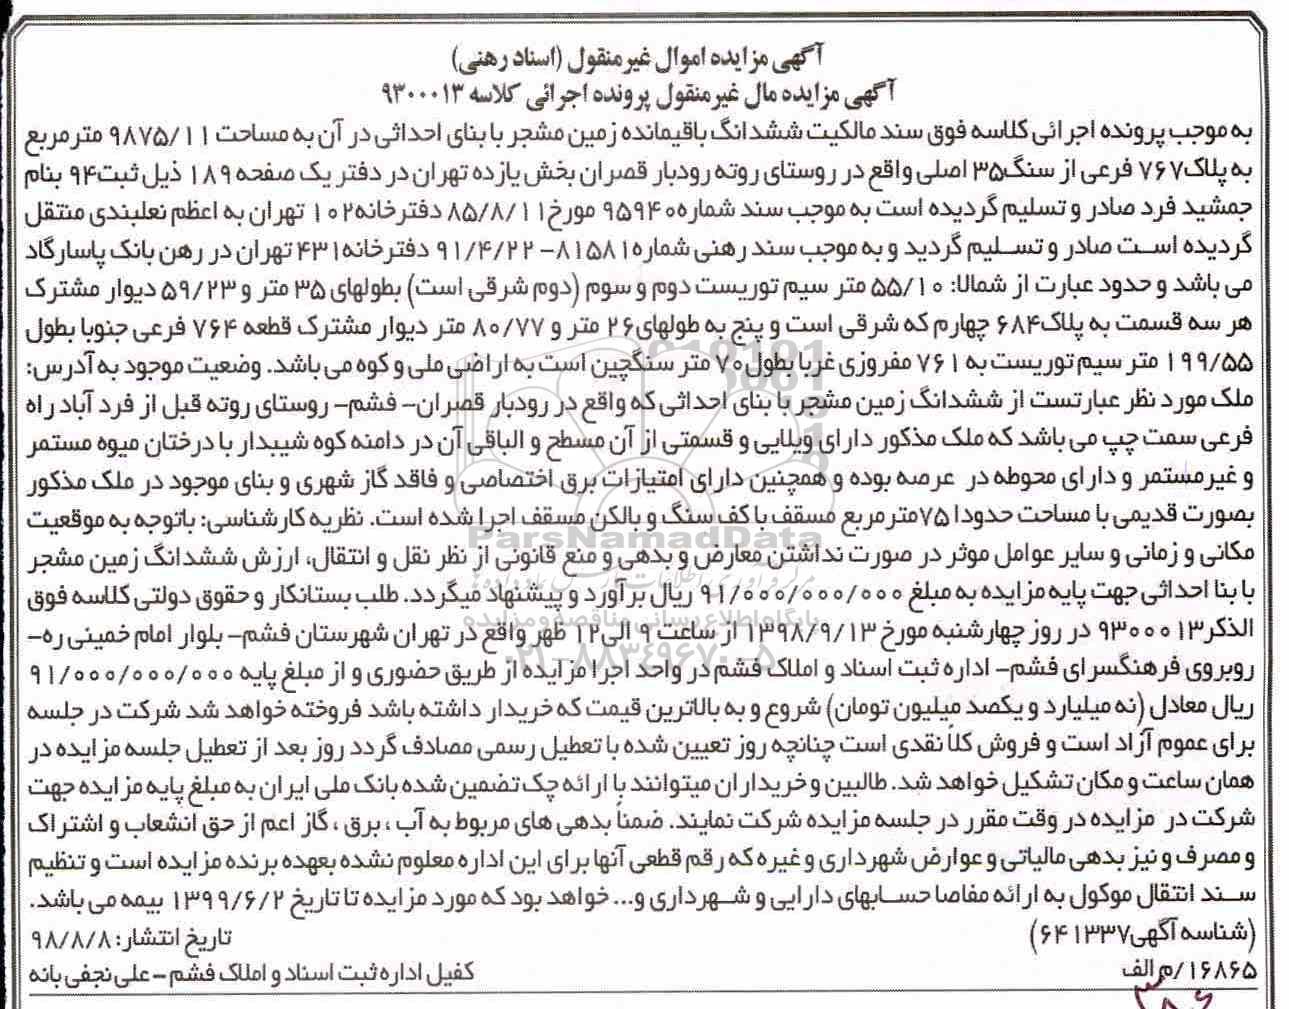 آگهی مزایده اموال غیرمنقول (اسناد رهنی)
آگهی مزایده مال غیرمنقول پرونده اجرائی کلاسه ۹۳۰۰۰۱۳
به موجب پرونده اجرائی کلاسه فوق سند مالکیت ششدانگ باقیمانده زمین مشجر با بنای احداثی در آن به مساحت ۹۸۷۵/۱۱ مترمربع
به پلاک۷۶۷ فرعی از سنگ۳۵ اصلی واقع در روستای روته رودبار قصران بخش یازده تهران در دفتر یک صفحه۱۸۹ ذیل ثبت۹۴ بنام
جمشید فرد صادر و تسلیم گردیده است به موجب سند شماره۹۵۹۴۰ مورخ۸۵/۸/۱۱ دفترخانه۱۰۲ تهران به اعظم نعلبندی منتقل
گردیده است صادر و تسلیم گردید و به موجب سند رهنی شماره۸۱۵۸۱- ۹۱/۴/۲۲ دفترخانه۴۳۱ تهران در رهن بانک پاسارگاد
می باشد و حدود عبارت از شمالا: ۵۵/۱۰ متر سیم توریست دوم و سوم (دوم شرقی است) بطولهای ۳۵ متر و ۵۹/۲۳ دیوار مشترک
هر سه قسمت به پلاک۶۸۴ چهارم که شرقی است و پنج به طولهای۲۶ متر و ۸۰/۷۷ متر دیوار مشترک قطعه ۷۶۴ فرعی جنوبا بطول
۱۹۹/۵۵ متر سیم توریست به ۷۶۱ مفروزی غربا بطول۷۰ متر سنگچین است به اراضی ملی و کوه می باشد. وضعیت موجود به آدرس:
ملک مورد نظر عبارتست از ششدانگ زمین مشجر با بنای احداثی که واقع در رودبار قصران- فشم- روستای روته قبل از فرد آباد راه
فرعی سمت چپ می باشد که ملک مذکور دارای ویلایی و قسمتی از آن مسطح و الباقی آن در دامنه کوه شیبدار با درختان میوه مستمر
و غیرمستمر و دارای محوطه در عرصه بوده و همچنین دارای امتیازات برق اختصاصی و فاقد گاز شهری و بنای موجود در ملک مذکور
بصورت قدیمی با مساحت حدودا ۷۵مترمربع مسقف با کف سنگ و بالکن مسقف اجرا شده است. نظریه کارشناسی: باتوجه به موقعیت
مکانی و زمانی و سایر عوامل موثر در صورت نداشتن معارض و بدهی و منع قانونی از نظر نقل و انتقال، ارزش ششدانگ زمین مشجر
با بنا احداثی جهت پایه مزایده به مبلغ ۹۱/۰۰۰/۰۰۰/۰۰۰ ریال برآورد و پیشنهاد میگردد. طلب بستانکار و حقوق دولتی کلاسه فوق
الذکر۹۳۰۰۰۱۳ در روز چهارشنبه مورخ ۱۳۹۸/۹/۱۳ از ساعت ۹ الی۱۲ ظهر واقع در تهران شهرستان فشم- بلوار امام خمینی ره-
روبروی فرهنگسرای فشم- اداره ثبت اسناد و املاک فشم در واحد اجرا مزایده از طریق حضوری و از مبلغ پایه ۹۱/۰۰۰/۰۰۰/۰۰۰
ریال معادل (نه میلیارد و یکصد میلیون تومان) شروع و به بالاترین قیمت که خریدار داشته باشد فروخته خواهد شد شرکت در جلسه
برای عموم آزاد است و فروش کلاً نقدی است چنانچه روز تعیین شده با تعطیل رسمی مصادف گردد روز بعد از تعطیل جلسه مزایده در
همان ساعت و مکان تشکیل خواهد شد. طالبین و خریداران میتوانند با ارائه چک تضمین شده بانک ملی ایران به مبلغ پایه مزایده جهت
شرکت در مزایده در وقت مقرر در جلسه مزایده شرکت نمایند. ضمناً بدهی های مربوط به آب ، برق ، گاز اعم از حق انشعاب و اشتراک
و مصرف و نیز بدهی مالیاتی و عوارض شهرداری و غیره که رقم قطعی آنها برای این اداره معلوم نشده بعهده برنده مزایده است و تنظیم
سند انتقال موکول به ارائه مفاصا حسابهای دارایی و شهرداری و... خواهد بود که مورد مزایده تا تاریخ ۱۳۹۹/۶/۲ بیمه می باشد.
(شناسه آگهی۶۴۱۳۳۷)
تاریخ انتشار: ۹۸/۸/۸
۱۶۸۶۵/م الف
کفیل اداره ثبت اسناد و املاک فشم - علی نجفی بانه
ParsNamadData
پایگاه اطلاع رسانی مناقصه و مزایده
۰۲۱-۸۸۳۴۹۶۷۰-۵